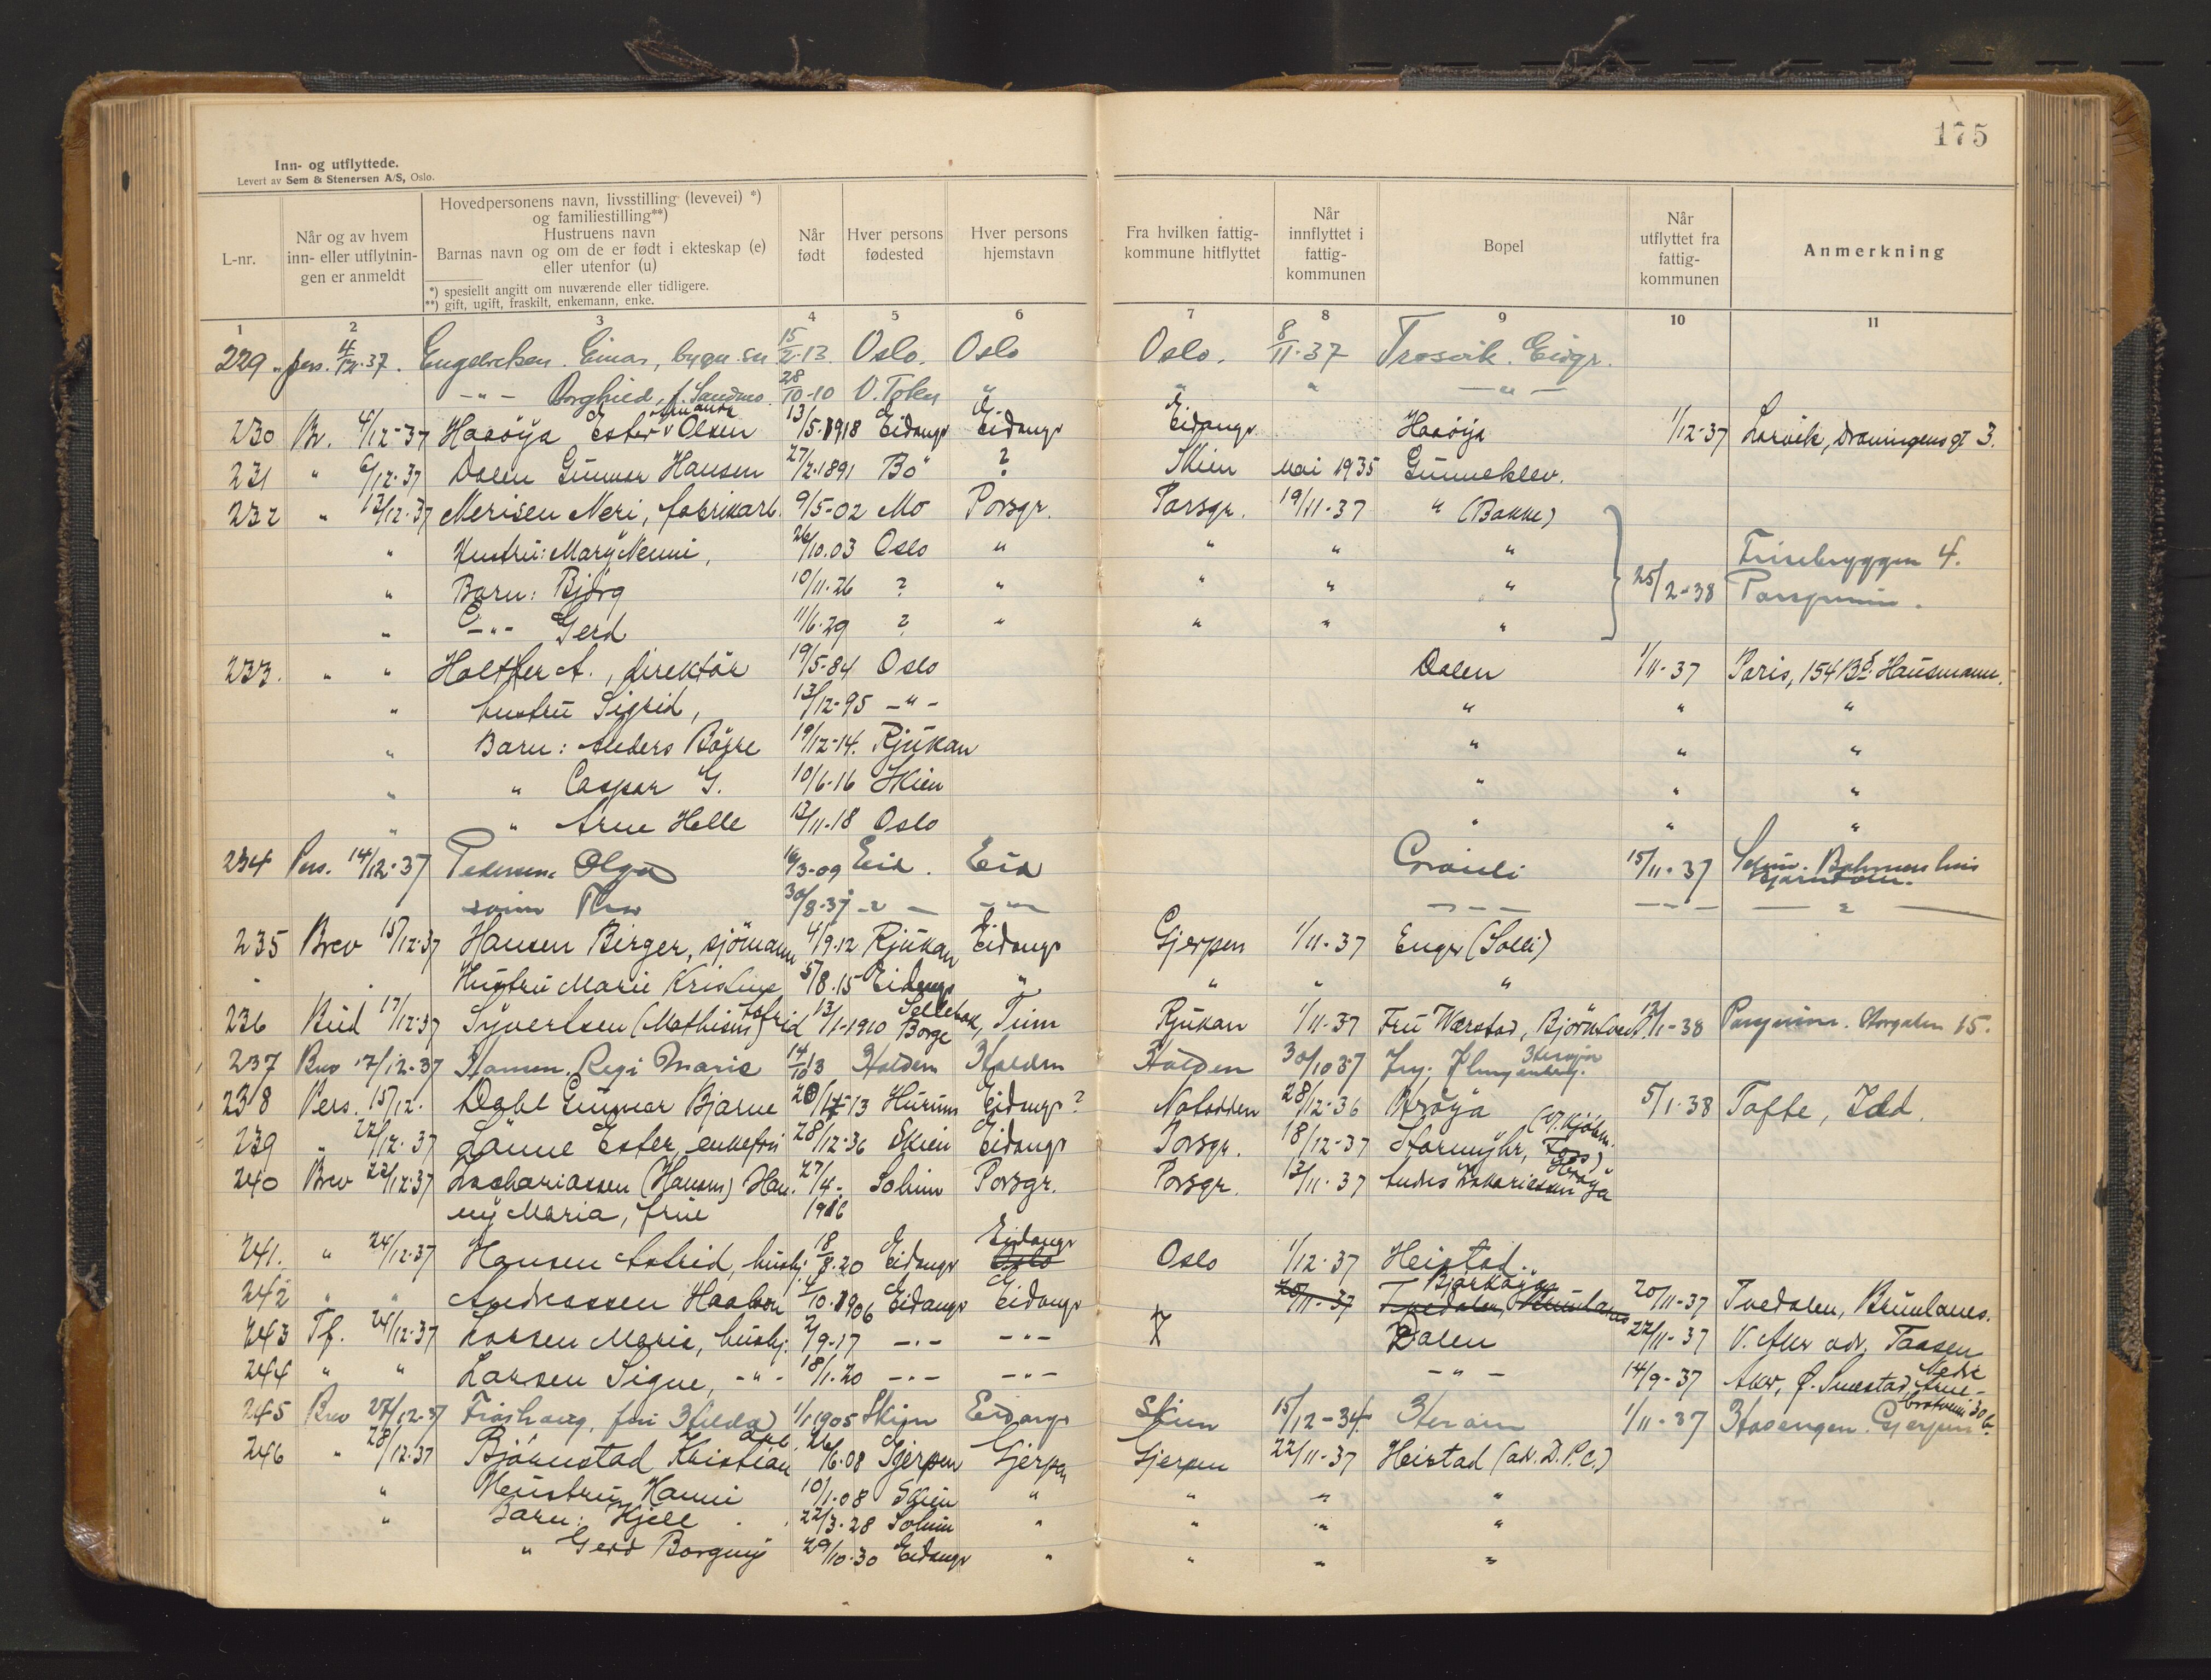 175
Inn- og utflyttede.
Levert av Sem & Stenersen A/S, Oslo.
L-nr.
Når og av hvem inn- eller utflytnin- gen er anmeldt
Hovedpersonens navn, livsstilling (levevei) *)
og familiestilling**)
Hustruens navn
Barnas navn og om de er født i ekteskap (e)
eller utenfor (u)
*) spesiellt angitt om nuværende eller tidligere.
**) gift, ugift, fraskilt, enkemann, enke.
Når født
Hver persons fødested
Hver persons hjemstavn
Fra hvilken fattig- kommune hitflyttet
Når innflyttet i fattig- kommunen
Bopel
Når utflyttet fra fattig- kommunen
Anmerkning
1 2 3 4 5 6 7 8 9 10 11
229. pers. 4/12-37. Engebretsen Einar, 15/2-13 Oslo. Oslo Oslo. 8/11-37 Trosvik. Eidgr.
-"- Borghild, f. Sandmo 28/10-10 V. Toten " " " -"-
230 Br. 4/12-37 Haaöya Ester Olsen 13/5-1918 Eidangr Eidangr Eidangr Haaöya 1/12-37 Larvik, Dronningensgt 3.
231 " 6/12-37 Dalen Gunnar Hansen 27/2-1891 Bö ? Skien mai 1935 Gunneklev.
232 " 13/12-37 Merisen Neri, fabrikarb. 9/5-02 Mo Porsgr. Porsgr. 19/11-37 " (Bakke)
" Hustru: Mary Nenni, 26/10.03 Oslo " " " "
" Barn: Bjørg 10/11-26 ? " " " " 25/2-38 Frisebryggen 4. Porsgrunn.
" -"- Gerd 11/6-29 ? " " " "
233. " " Holtfer A., direktör 19/5-84 Oslo Dalen 1/11-37 Paris, 154 Bd. Hausmann.
" hustru Sigrid, 13/12-95 -"- " " "
" Barn: Anders Börre 19/12-14. Rjukan " " "
" " Caspar G. 10/6-16 Skien " " "
" " Arne Helle 12/11-18 Oslo " " "
234 Pers. 14/12-37 Pedersen Olga 16/3-09 Eid. Eid 15/11-37
30/8-37 -"- -"- -"- -"- -"-
235 Brev 15/12-37 Hansen Birger, sjömann 4/9-12 Rjukan Eidangr Gjerpen 1/11-37 Enger (Solli)
Hustru Marie Kristine 5/8-15 Eidangr " " " "
236 Bud 17/12-37 Syvertsen (Mathisen) Astrid 13/1-1910 Sellebak, Borge Tinn Rjukan 1/11-37 Fru Wærstad, Björntvedt. 12/1-38 Porsgrunn. Storgaten 15.
237 Brev 17/12-37 Hansen. Regi Marie 14/10 13 Halden Halden Halden 30/10 37
238 Pers. 15/12. Dahl Gunnar Bjarne 20/12-13 Hurum Eidangr? Notodden 28/12-36 Aröya 5/1-38 Tofte, Idd.
239 " 22/12-37 Lönne Ester, enkefru 28/12-36 Skien Eidangr Porsgr. 18/12-37 Stormyhr,
240 Brev 22/12-37 Zachariassen (Hansen) Han- 27/4- Solum Porsgr. Porsgr. 13/11-37 Anders Zakariassen Heröya
ny Maria, frue 1916
241. " 24/12-37 Hansen Astrid, hushj. 18/8-20 Eidangr Oslo Eidangr Oslo 1/12-37 Heistad.
242 " " Andreassen Haakon 4/10-1906 Eidangr Eidangr 20/11-37 Tvedalen, Brunlanes Bjørkøya 20/11-37 Tvedalen, Brunlanes.
243 Tf. 24/12-37 Larsen Marie, hushj. 2/9-17 -"- -"- Dalen 22/11-37 V. Aker adr. Taasen
244 " " Larsen Signe, -"- 18/1-20 -"- -"- -"- 14/9-37 Aker, Ø. Smestad,
245 Brev 27/12-37 fru Hilda 1/1 1905 Skien Eidangr Skien 15/12-34 Heröen 1/11-37 Hovengen. Gjerpen
246 " 28/12-37 Björnstad Kristian arb. 26/6-08 Gjerpen Gjerpen Gjerpen 22/11-37 Heistad (adr. D.P.C.)
" Hustru Hanni 10/1-08 Skien " " " "
" Barn: Kjell 22/3-28 Solum " " " "
" Gerd Borgny 29/10-30 Eidangr " " " "